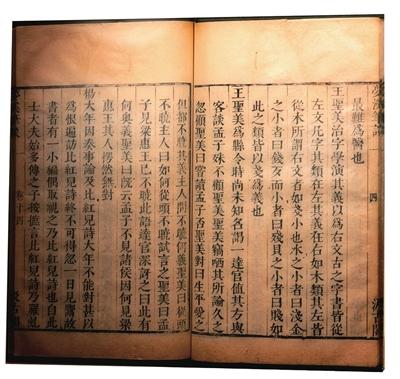 夢溪筆談
四
汲古閣
最難爲也
王聖美治字學演其義以爲右文古之字書皆從
左文凡字其類在左其義在右如木類其左皆從
木所謂右文者如戔小也水之小者曰淺金
之小者曰錢歹而小者曰殘貝之小者曰賤如
此之類皆以戔爲義也
王聖美爲縣令時尚未知名謁一達官值其方與
客談孟子殊不顧聖美聖美竊哂其所論久之
忽顧聖美曰嘗讀孟子否聖美對曰生平愛之
但都不曉其義主人問不曉何義聖美曰從頭
不曉主人曰如何從頭不曉試言之聖美曰孟
子見梁惠王已不曉此語達官深訝之曰此有
何奧義聖美曰既云孟子不見諸侯因何見梁
惠王其人愕然無對
楊大年因奏事論及比紅兒詩大年不能對甚以
爲恨遍訪比紅兒詩終不可得忽一日見鬻故
書者有一小編偶取視之乃比紅兒詩也自此
士大夫始多傳之予按摭言比紅兒詩乃羅虬
夢溪筆談
卷十四
汲古閣